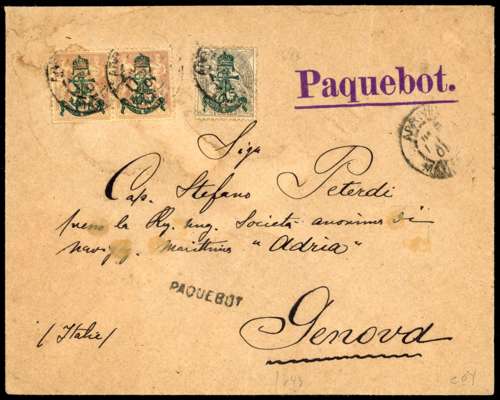 Paquebot.
Sigr
Cap. Stefano Peterdi
presso la Rg. ung. Società anonima di
navigaz. marittima "Adria"
PAQUEBOT
Genova
(Italie)